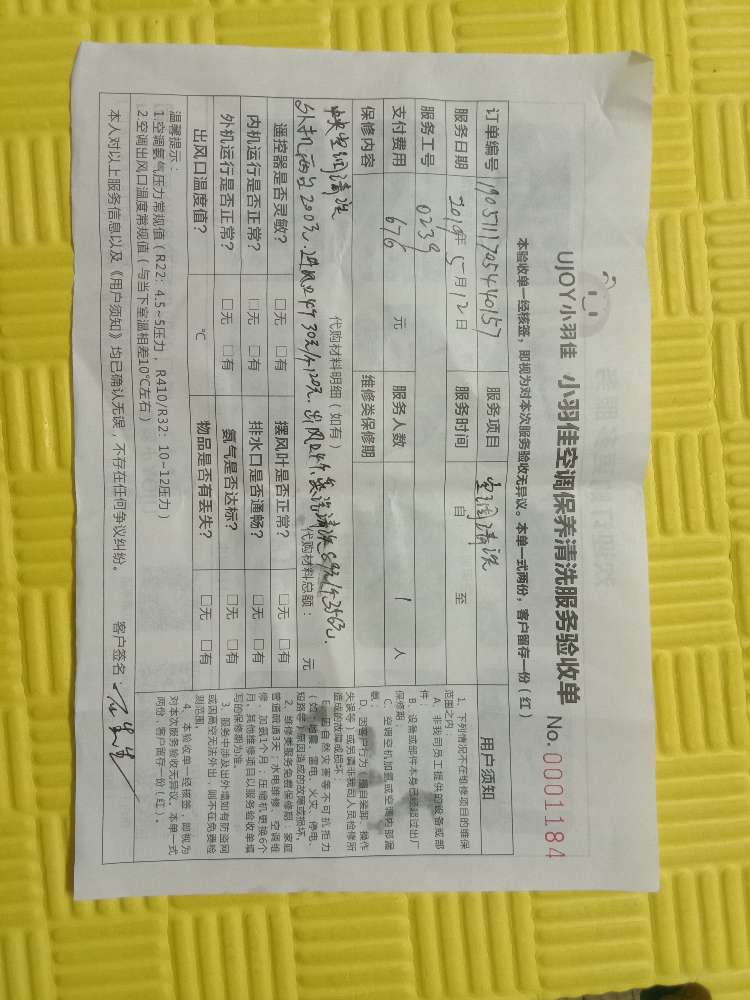 UJOY小羽佳 小羽佳空调保养清洗服务验收单 No.0001184
本验收单一经核签，即视为对本次服务验收无异议。本单一式两份，客户留存一份（红）
订单编号 19051117054440157 服务项目 空调清洗
服务日期 2019年5月12日 服务时间 自 至
服务工号 0239
支付费用 676 元 服务人数 1 人
保修内容 维修类保修期
中央空调清洗 代购材料明细（如有）
外机两台200元. 代购材料总额： 元
遥控器是否灵敏？ □无 □有 摆风叶是否正常？ □无 □有
内机运行是否正常？ □无 □有 排水口是否通畅？ □无 □有
外机运行是否正常？ □无 □有 氨气是否达标？ □无 □有
出风口温度值？ ℃ 物品是否有丢失？ □无 □有
温馨提示：
1.空调氨气压力常规值（R22：4.5~5压力，R410/R32：10-12压力）
2.空调出风口温度常规值（与当下室温相差10℃左右）
本人对以上服务信息以及《用户须知》均已确认无误，不存在任何争议纠纷。 客户签名
用户须知
1、下列情况不在维修项目的维保
范围之内
A、非我司员工提供的设备或部
件；
B、设备或部件本身已经超过出厂
保修期；
C、空调空机加氨或空调内部漏
氨；
D、因客户行为（擅自装卸、操作
失误等）或另请非我司人员检修所
造成的故障或损坏；
E、因自然灾害等不可抗拒力
（如：地震、雷电、火灾、停电、
短路等）原因造成的故障或损坏。
2、维修类服务免费保修期：家庭
管道疏通3天；水电维修、空调维
修、加氨1个月；压缩机更换6个
月；其他维修项目以服务验收单填
写的保修期为准。
3、服务中涉及出外墙如有防盗网
或因高空无法外出，则不在免费检
测范围。
4、本验收单一经核签，即视为
对本次服务验收无异议。本单一式
两份，客户留存一份（红）。